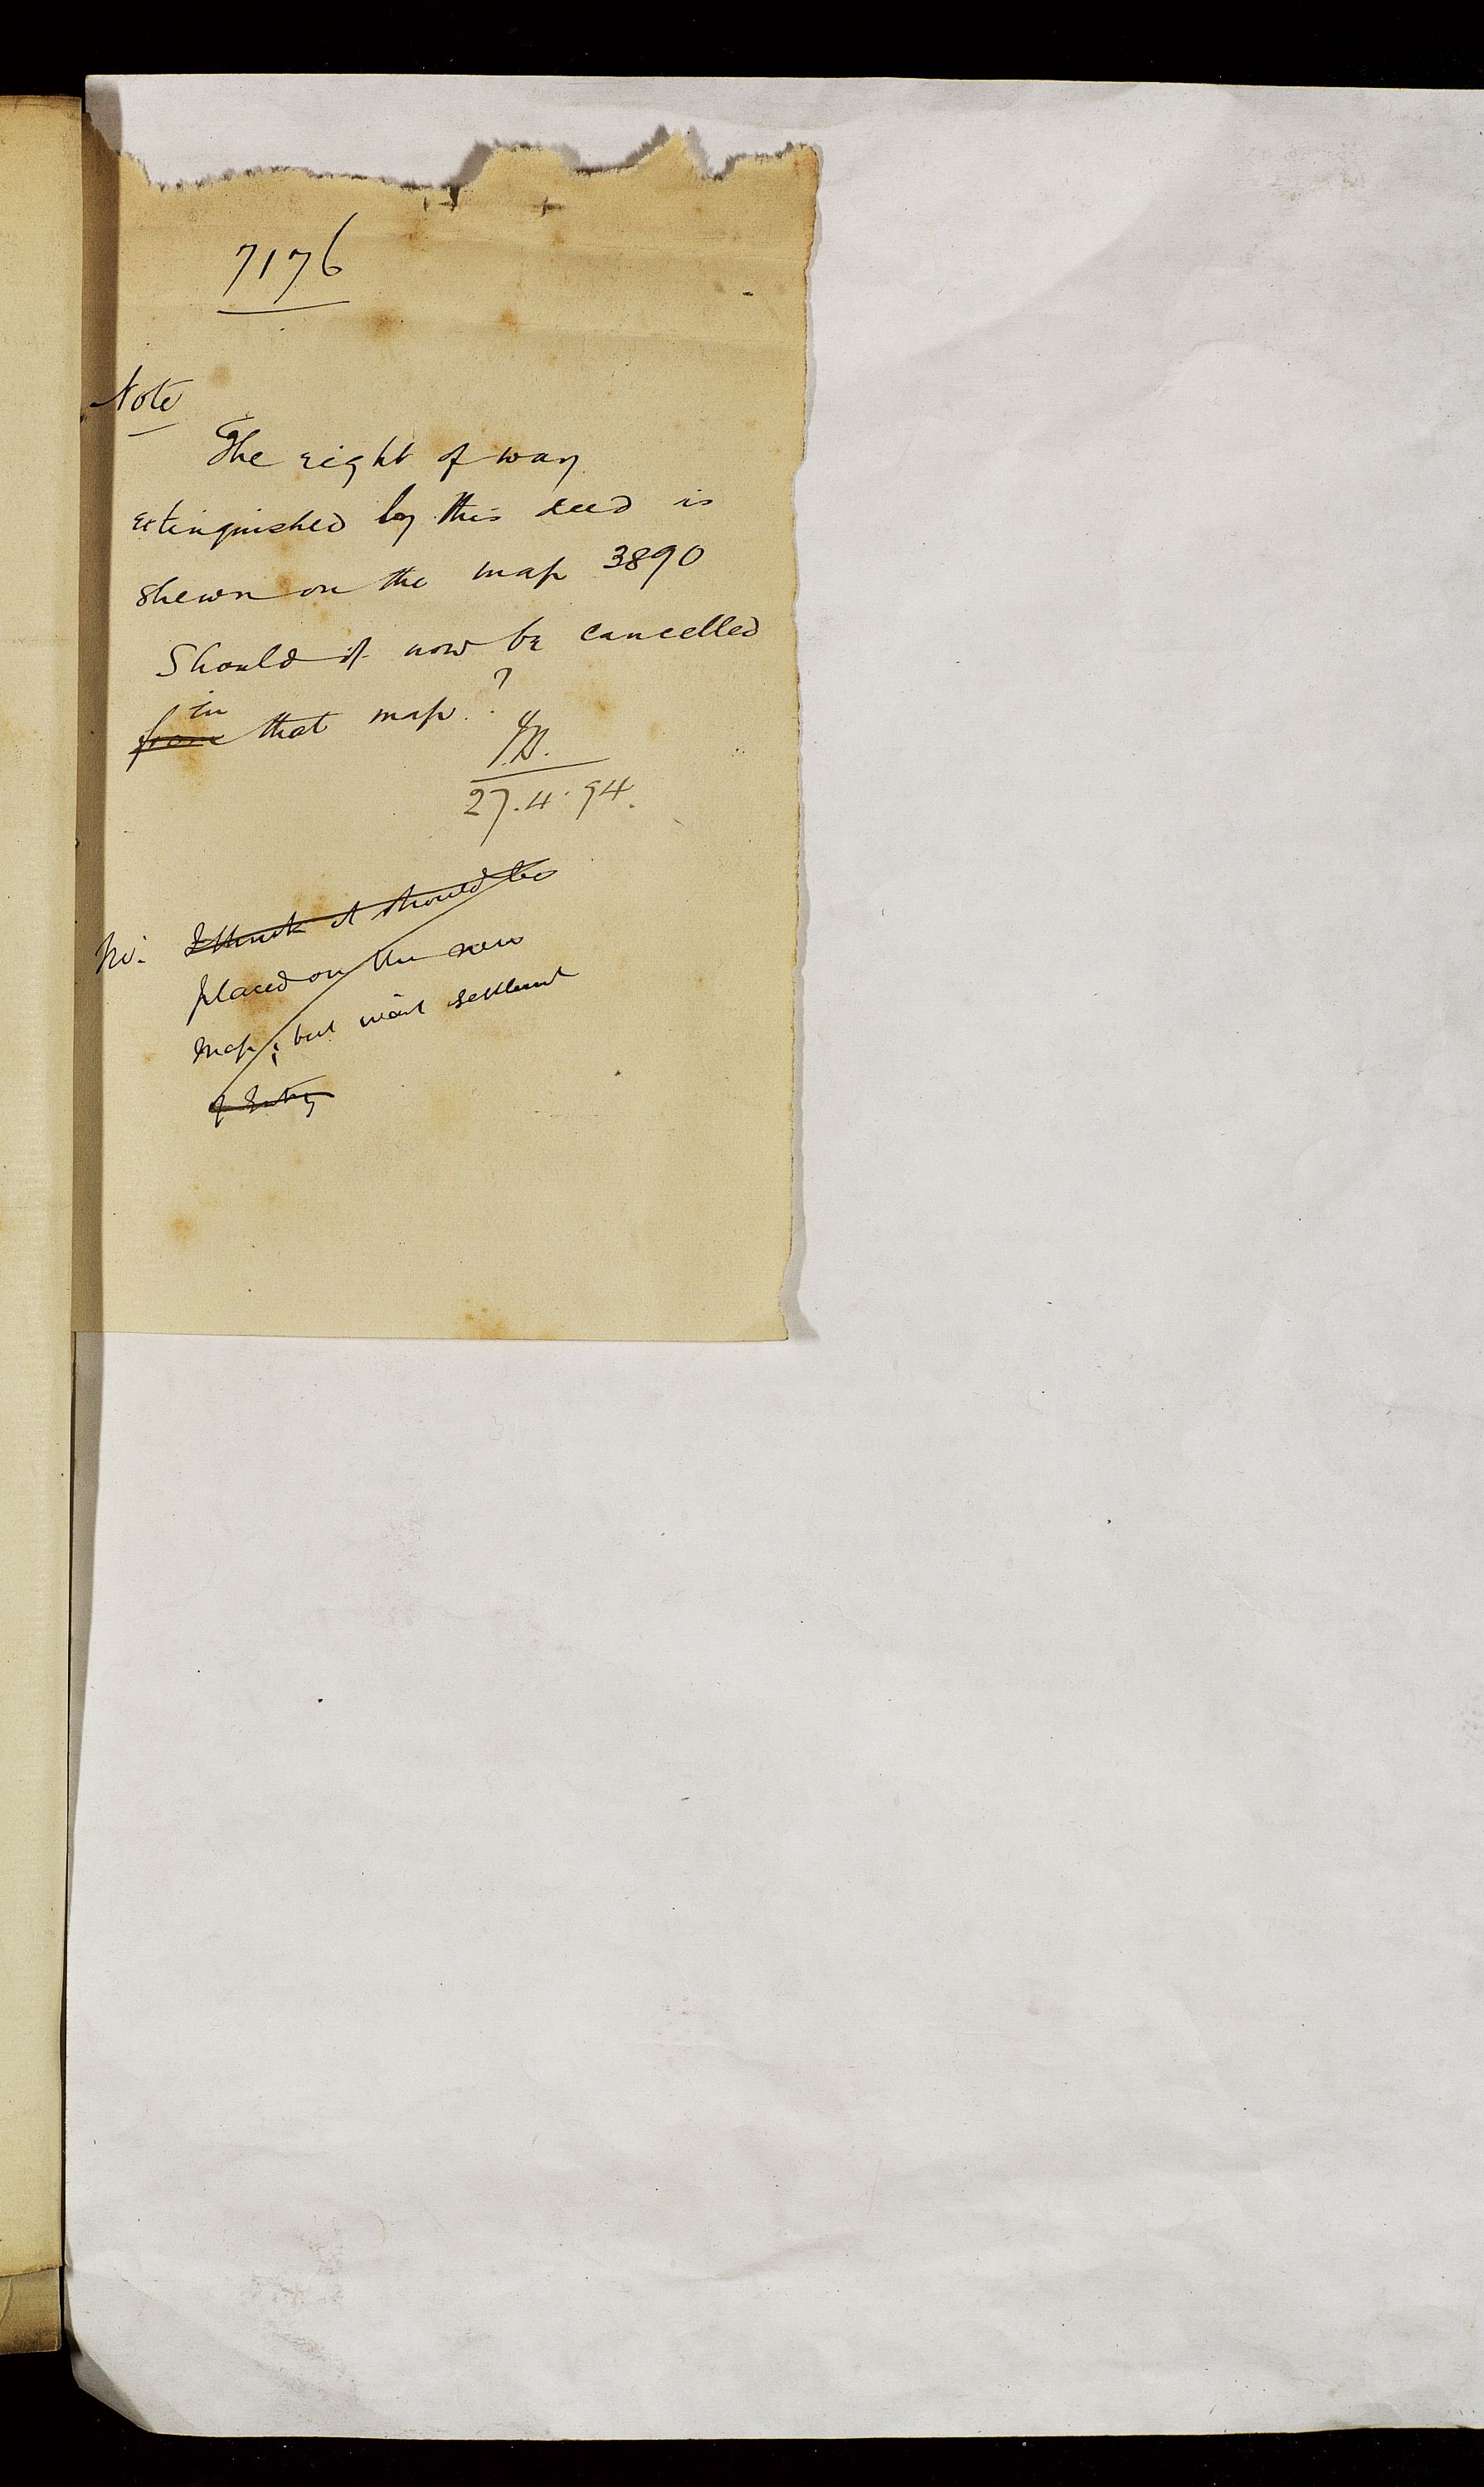 7176
Note
The right of way
extinguished by this deed is
shewn on the map 3890
Should it now be cancelled
in
from that map ?
27.4.94.
No. I think it should be
placed on the new
map; but wait settlement
of